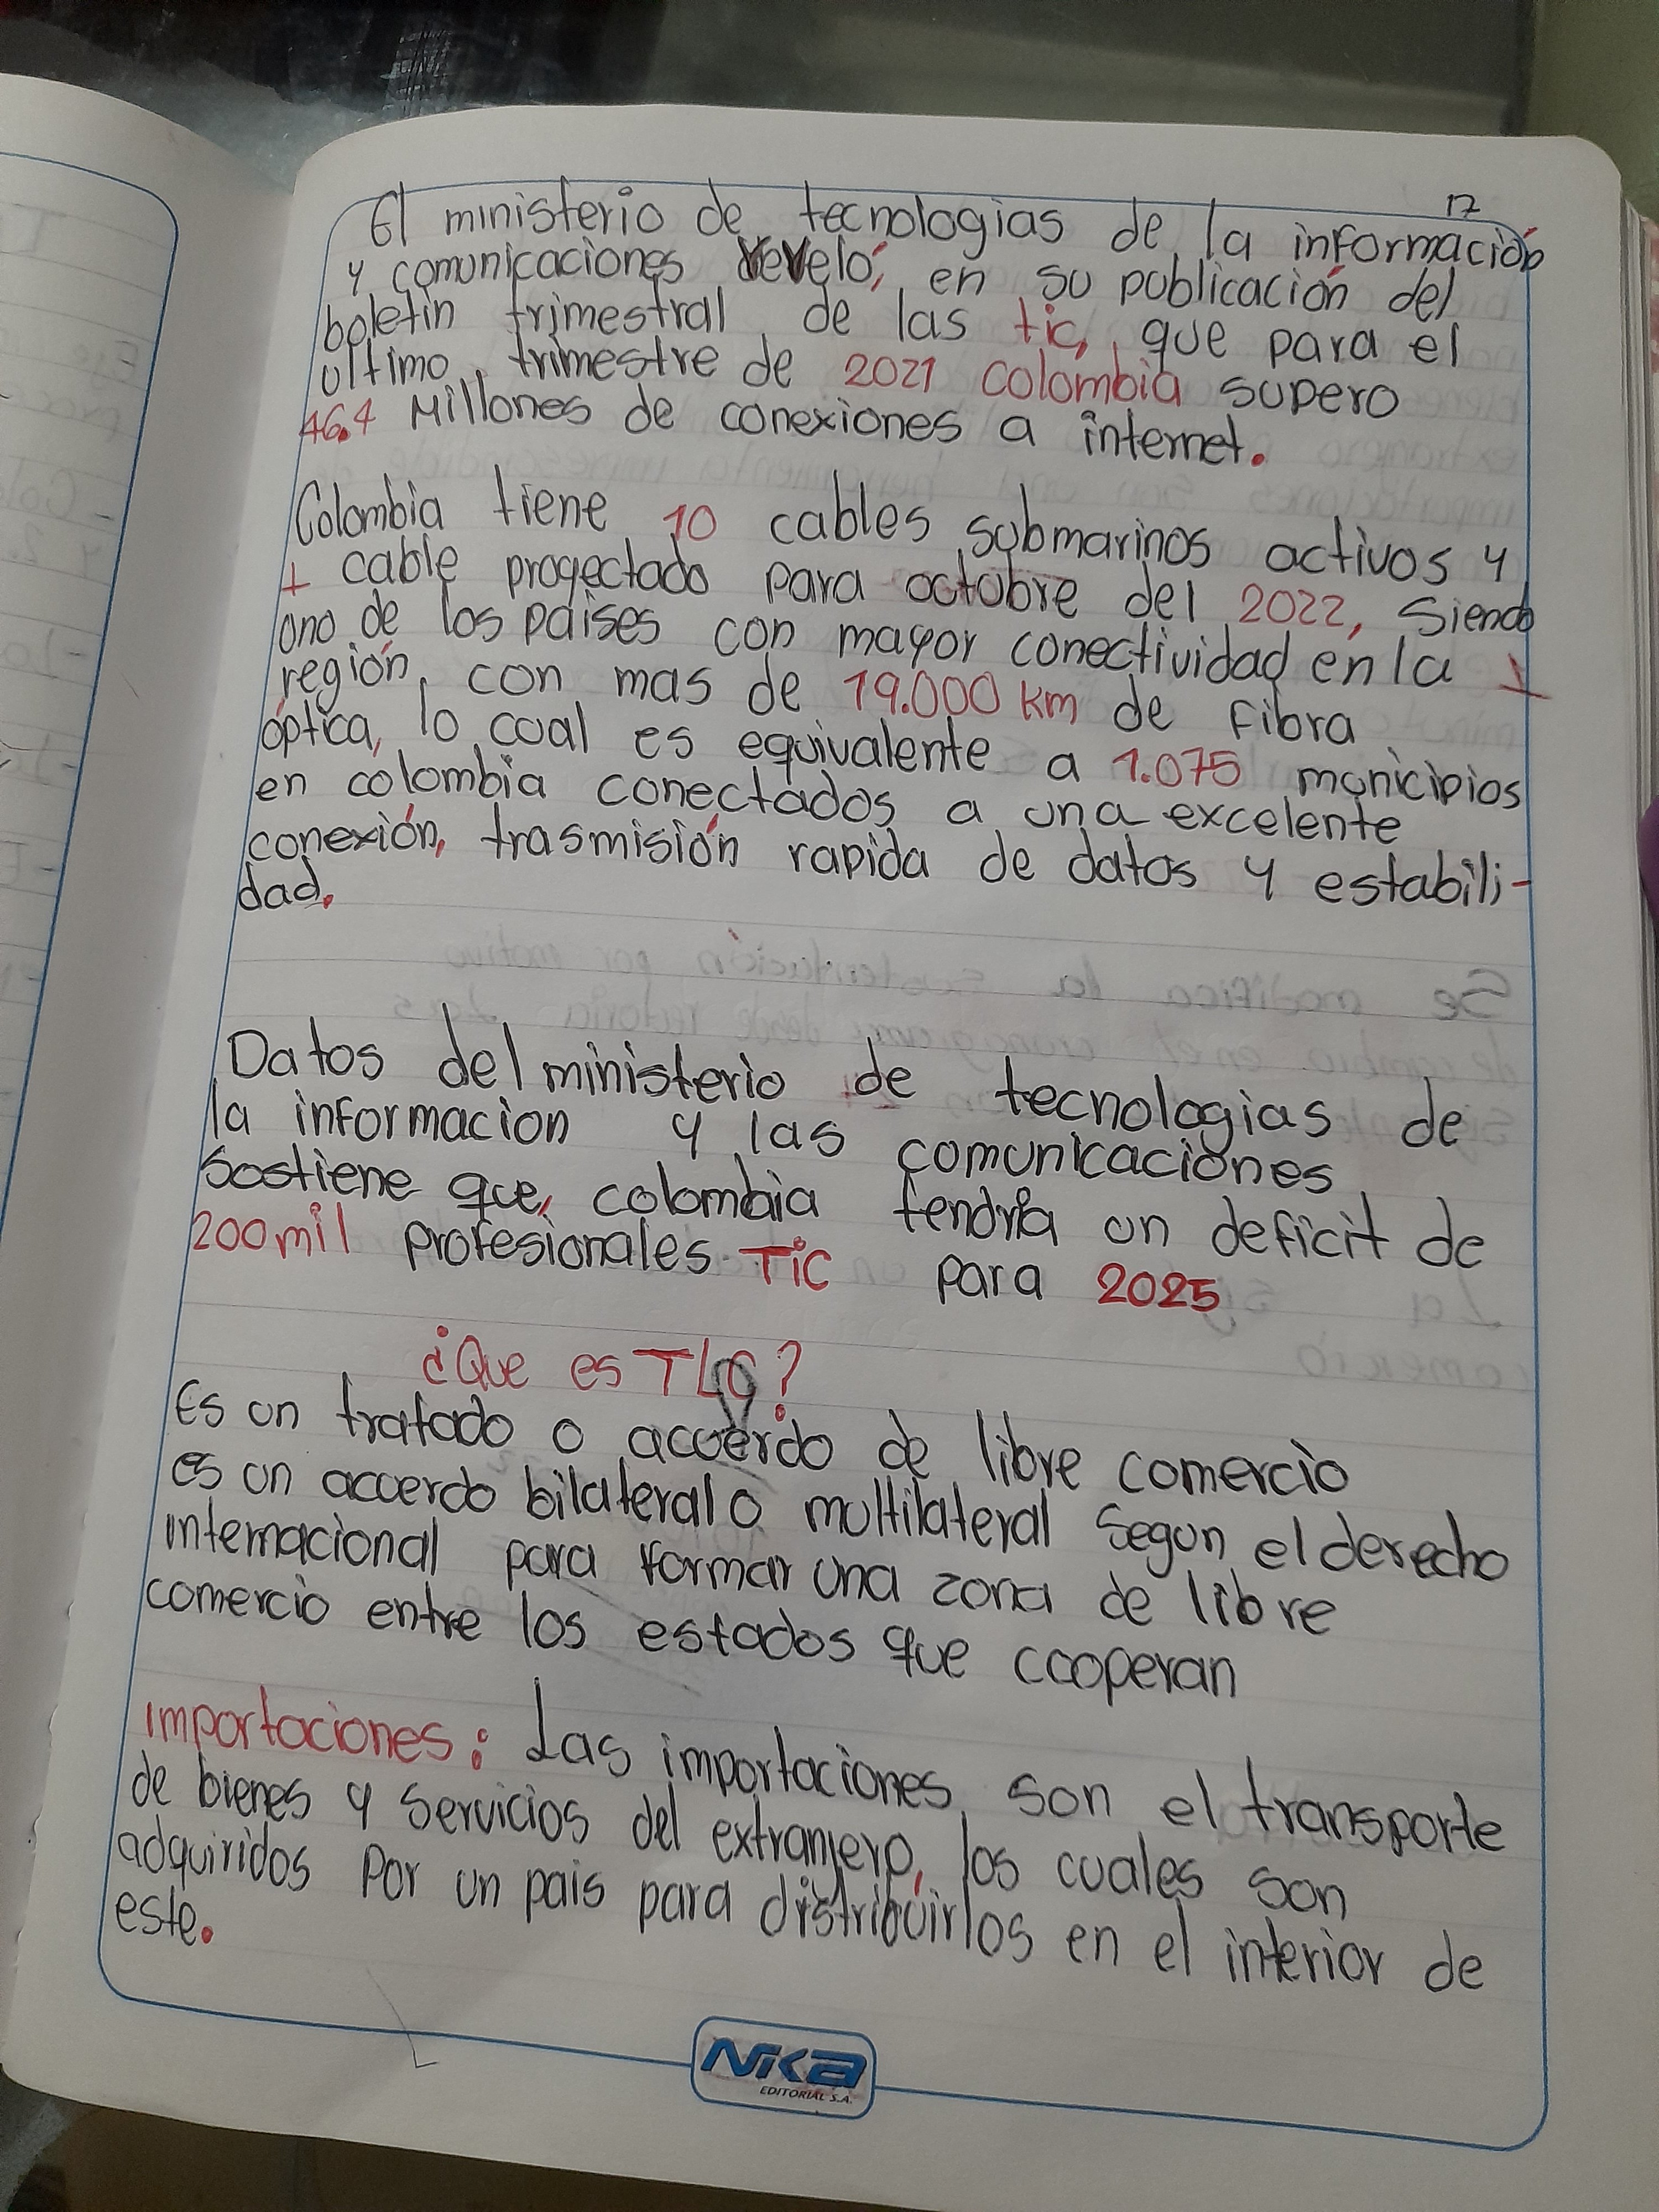 17
El ministerio de tecnologias de la información
y comunicaciones reveló, en su publicación del
boletin trimestral de las tic, que para el
ultimo trimestre de 2021 colombia supero
46.4 Millones de conexiones a internet.
Colombia tiene 10 cables submarinos activos y
1 cable proyectado para octubre del 2022, siendo
uno de los paises con mayor conectividad en la
región, con mas de 19.000 km de fibra
óptica, lo cual es equivalente a 1.075 municipios
en colombia conectados a una excelente
conexión, trasmisión rapida de datos y estabili-
dad.
Datos del ministerio de tecnologias de
la informacion y las comunicaciones
sostiene que, colombia tendria un deficit de
200mil profesionales TiC para 2025
¿Que es TLC?
Es un tratado o acuerdo de libre comercio
es un acuerdo bilateral o multilateral segun el derecho
internacional para formar una zona de libre
comercio entre los estados que cooperan
importaciones: Las importaciones son el transporte
de bienes y servicios del extranjero, los cuales son
adquiridos por un pais para distribuirlos en el interior de
este.
Nika
EDITORIAL S.A.